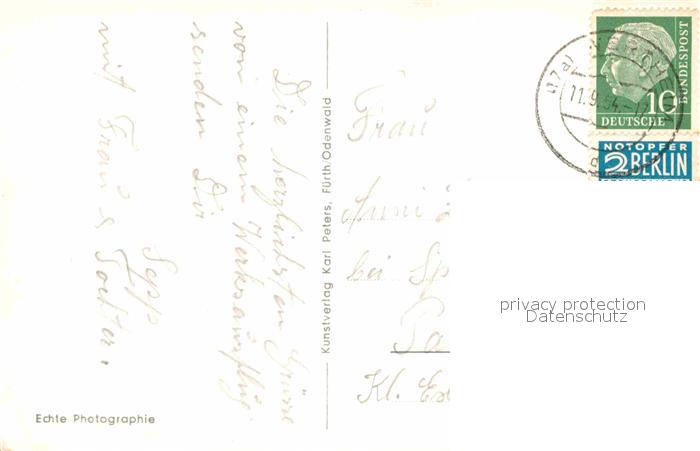 Die herzlichsten Grüße
von einem Werksausflug
senden Dir
Sepp
mit Frau & Tochter.
Echte Photographie
Kunstverlag Karl Peters, Fürth/Odenwald
Frau
bei
Pa
Kl.
(17a)
11.9.54.
DEUTSCHE
BUNDESPOST
10
NOTOPFER
2 BERLIN
privacy protection
Datenschutz